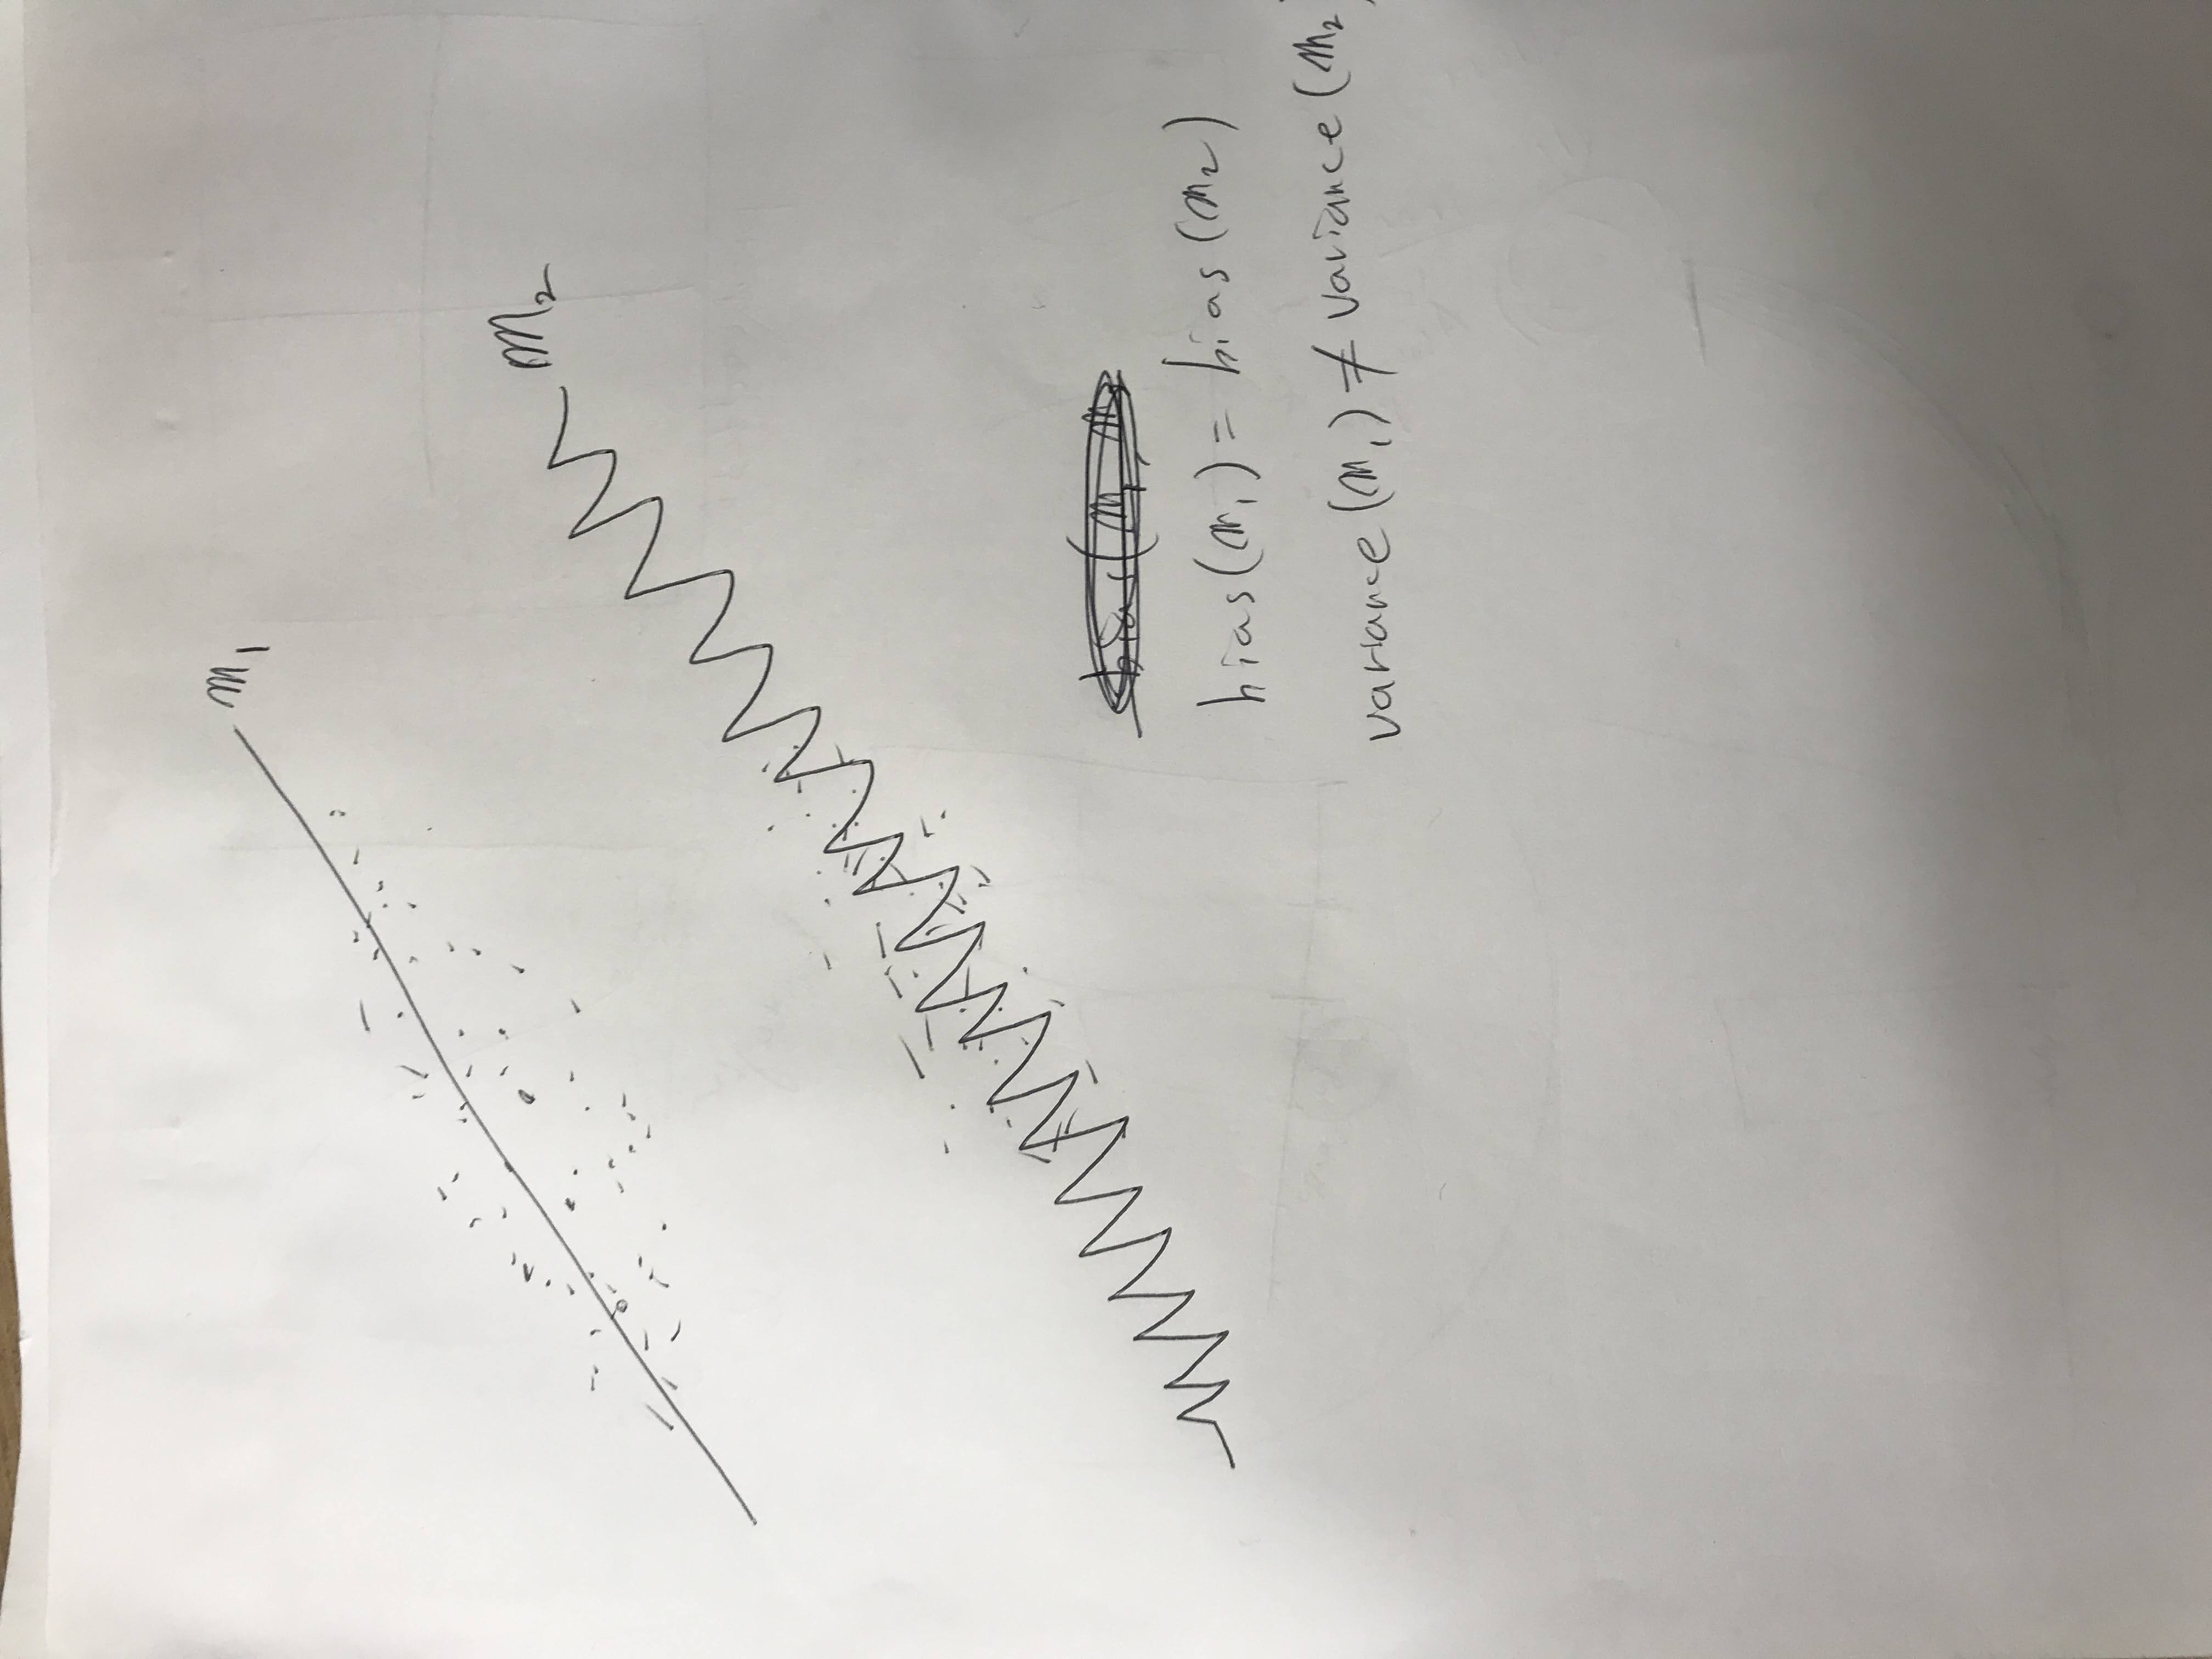 m₁
m₂
bias(m₁, m₂
bias(m₁) = bias(m₂)
variance(m₁) ≠ variance(m₂)